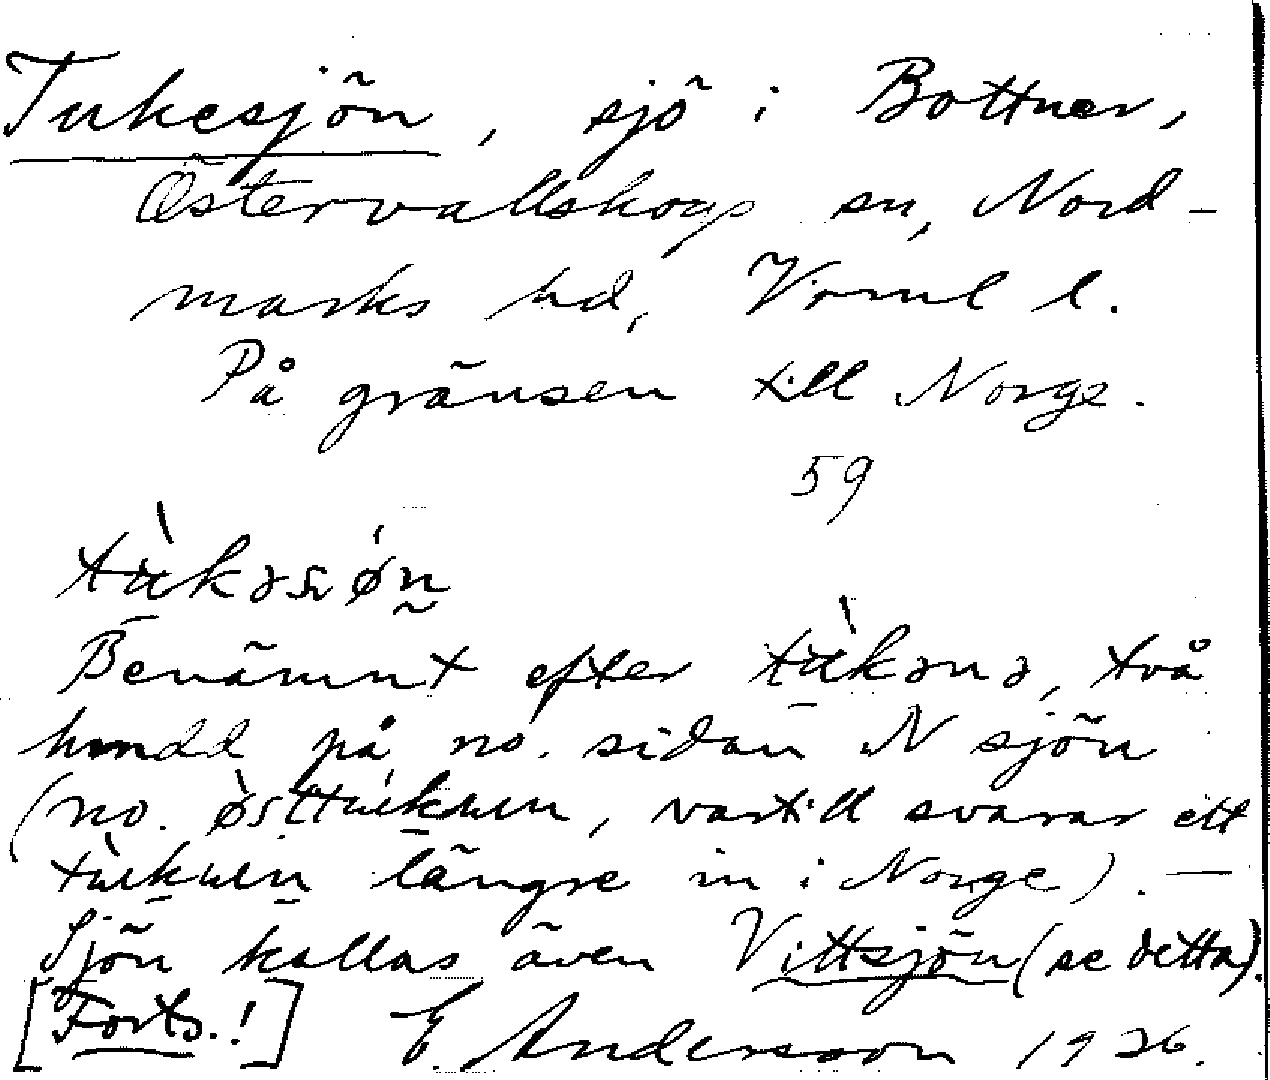 Tukesjön, sjö i Bottner,
Östervallskogs sn, Nord-
marks hd, Värml l.
På gränsen till Norge.
59
tùkəsøn
Benämnt efter tùkənə, två
hmdd på no. sidan N sjön
(no. østtukun, vartill svarar ett
tukun längre in i Norge). —
Sjön kallas även Vittsjön (se detta).
[Forts.!] E Andersson 1926.